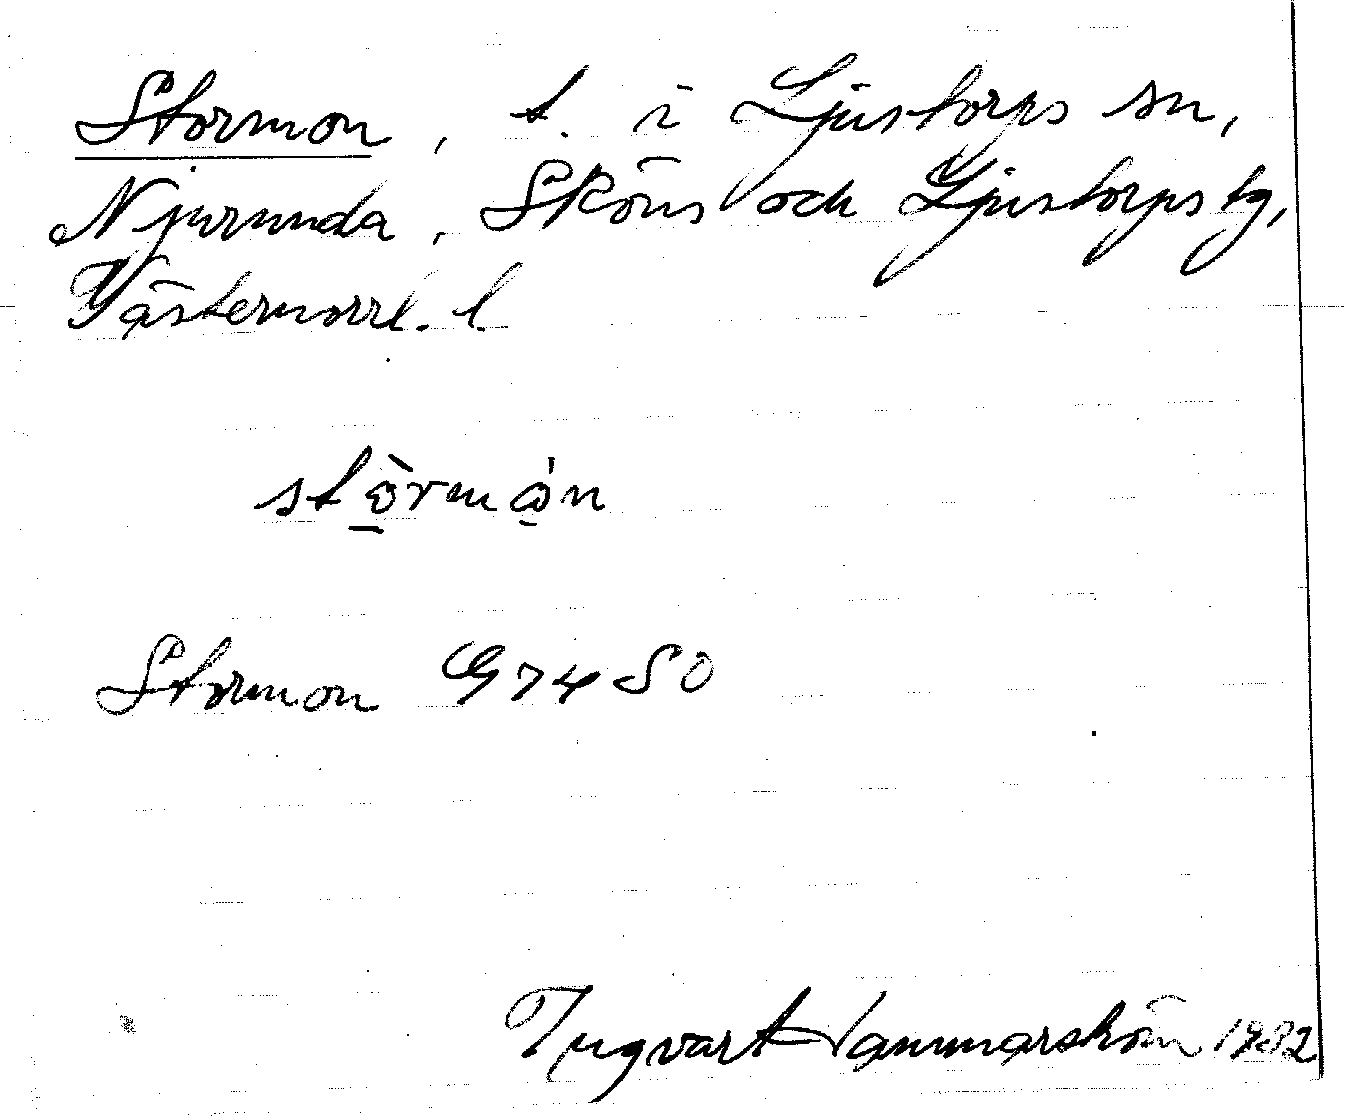 Stormon, t. i Ljustorps sn,
Njurunda, Sköns och Ljustorps tg,
Västernorrl. l.
stòrmón
Stormon G74 SO
Ingvart Hammarström 1932